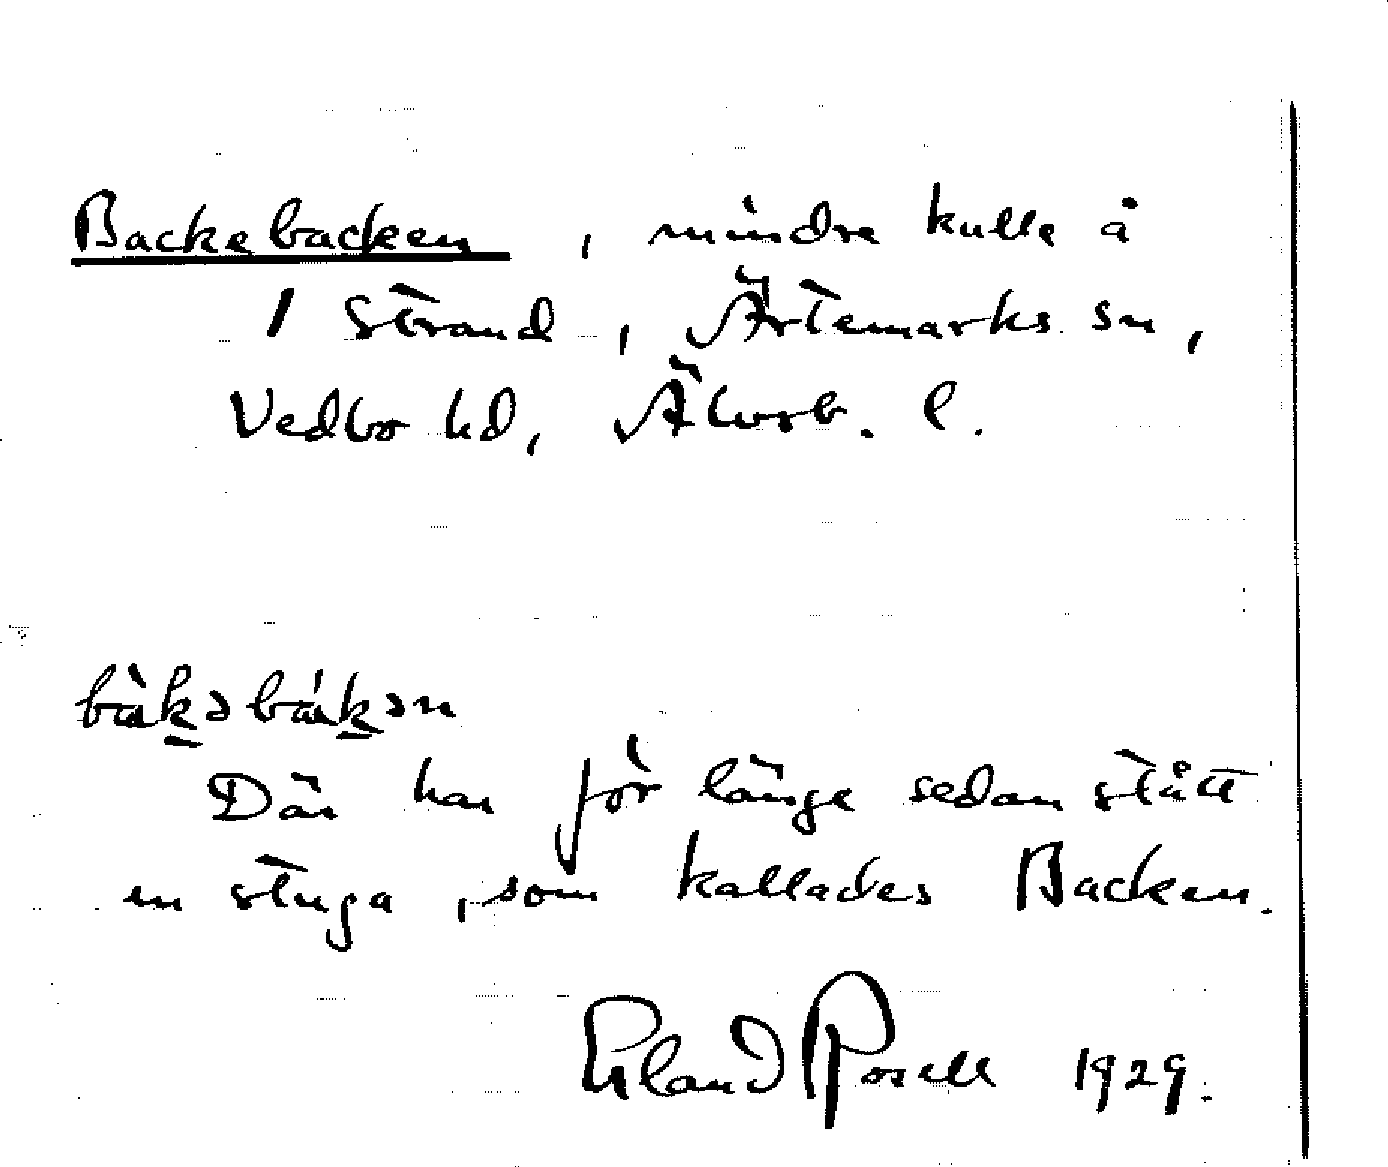 Backebacken, mindre kulle å
1 Strand, Ärtemarks sn,
Vedbo hd, Älvsb. l.
bàkəbák̠ən
Där har för länge sedan stått
en stuga, som kallades Backen.
Erland Rosell 1929.